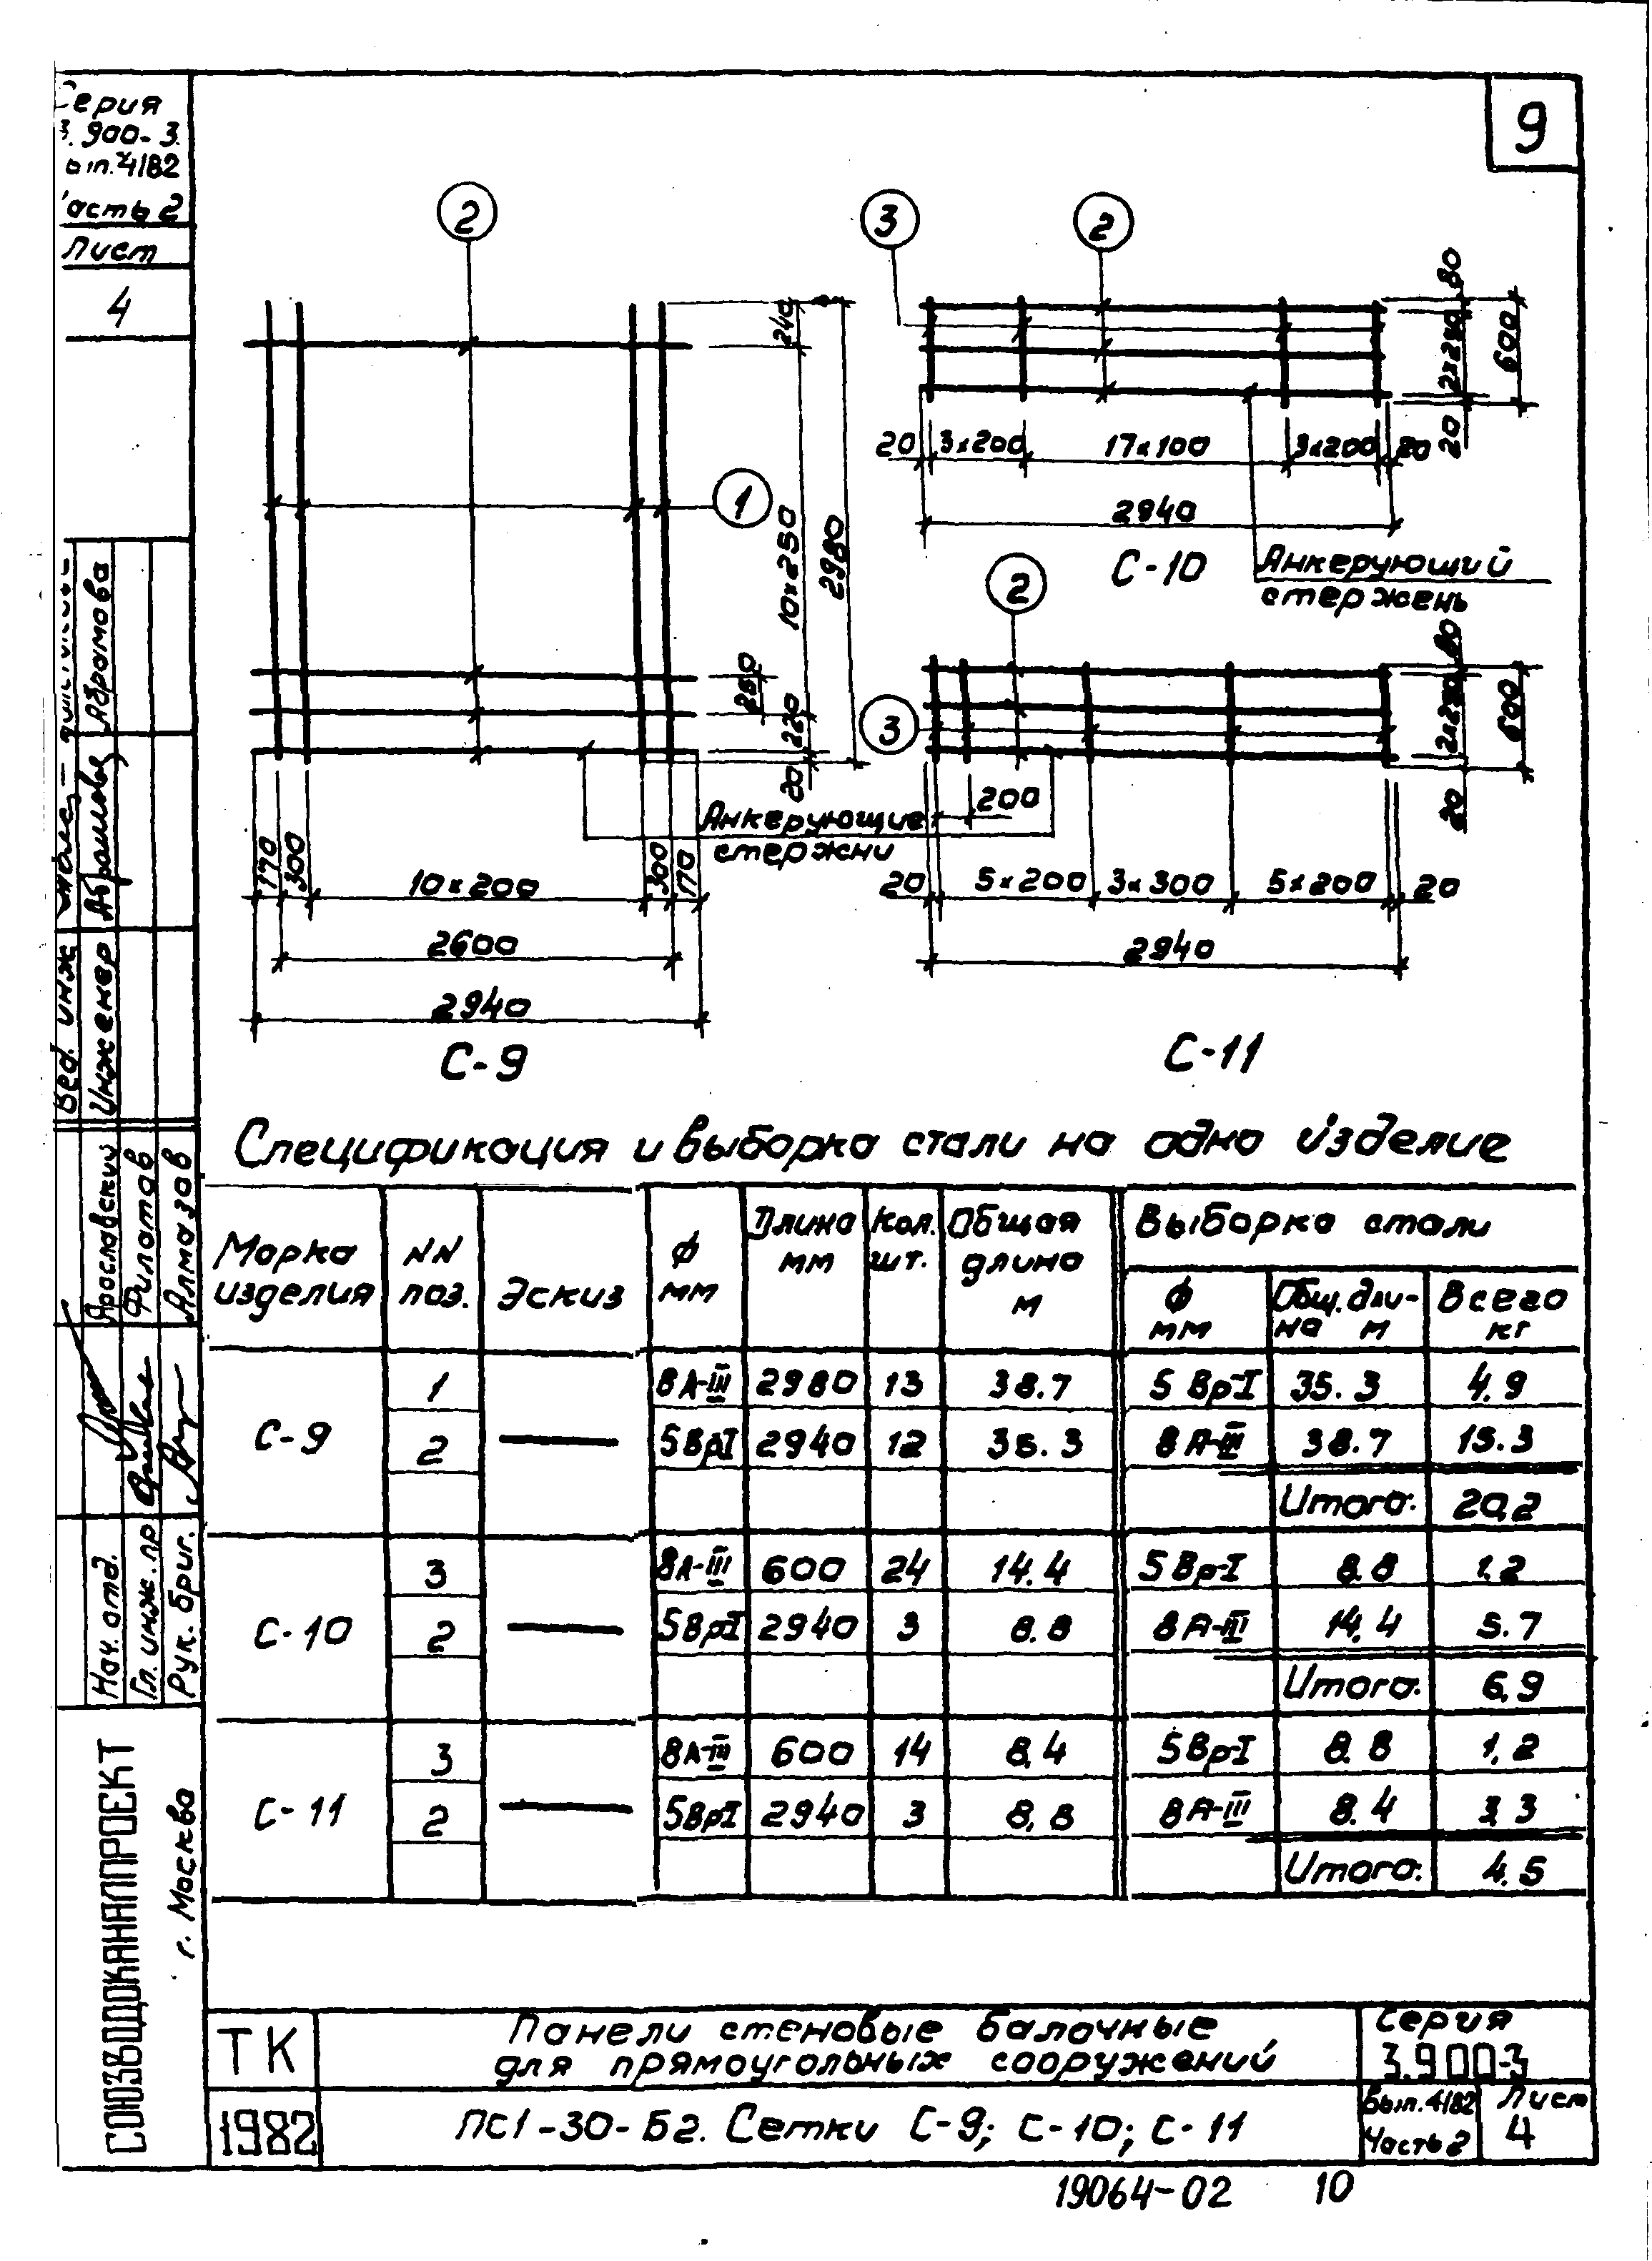 Серия
3.900-3
вып.4/82
часть 2
Лист
4
9
2
1
240
10х250
2980
250
220
20
170
300
10х200
300
170
2600
2940
С-9
Анкерующие
стержни
3
2
80
2х260
600
20
20
3х200
17х100
3х200
20
2940
С-10
Анкерующий
стержень
2
3
80
2х260
600
20
200
20
5х200
3х300
5х200
20
2940
С-11
Спецификация и выборка стали на одно изделие
Марка изделия
NN поз.
Эскиз
ф мм
Длина мм
Кол. шт.
Общая длина м
Выборка стали
ф мм
Общ. дли-на м
Всего кг
С-9
1 8А-III 2980 13 38.7 5Вр-I 35.3 4.9
2 5ВрI 2940 12 35.3 8А-III 38.7 15.3
Итого: 20,2
С-10
3 8А-III 600 24 14.4 5Вр-I 8.8 1.2
2 5ВрI 2940 3 8.8 8А-III 14.4 5.7
Итого: 6,9
С-11
3 8А-III 600 14 8,4 5Вр-I 8.8 1,2
2 5ВрI 2940 3 8,8 8А-III 8.4 3,3
Итого: 4.5
Вед. инж
Инженер
Абрамова
Ярославский
Филатов
Алмазов
Нач. отд.
Гл. инж. пр
Рук. бриг.
СОЮЗВОДОКАНАЛПРОЕКТ
г. Москва
ТК
1982
Панели стеновые балочные
для прямоугольных сооружений
ПС1-30-Б2. Сетки С-9; С-10; С-11
Серия
3.900-3
Вып.4/82
Часть 2
Лист
4
19064-02 10